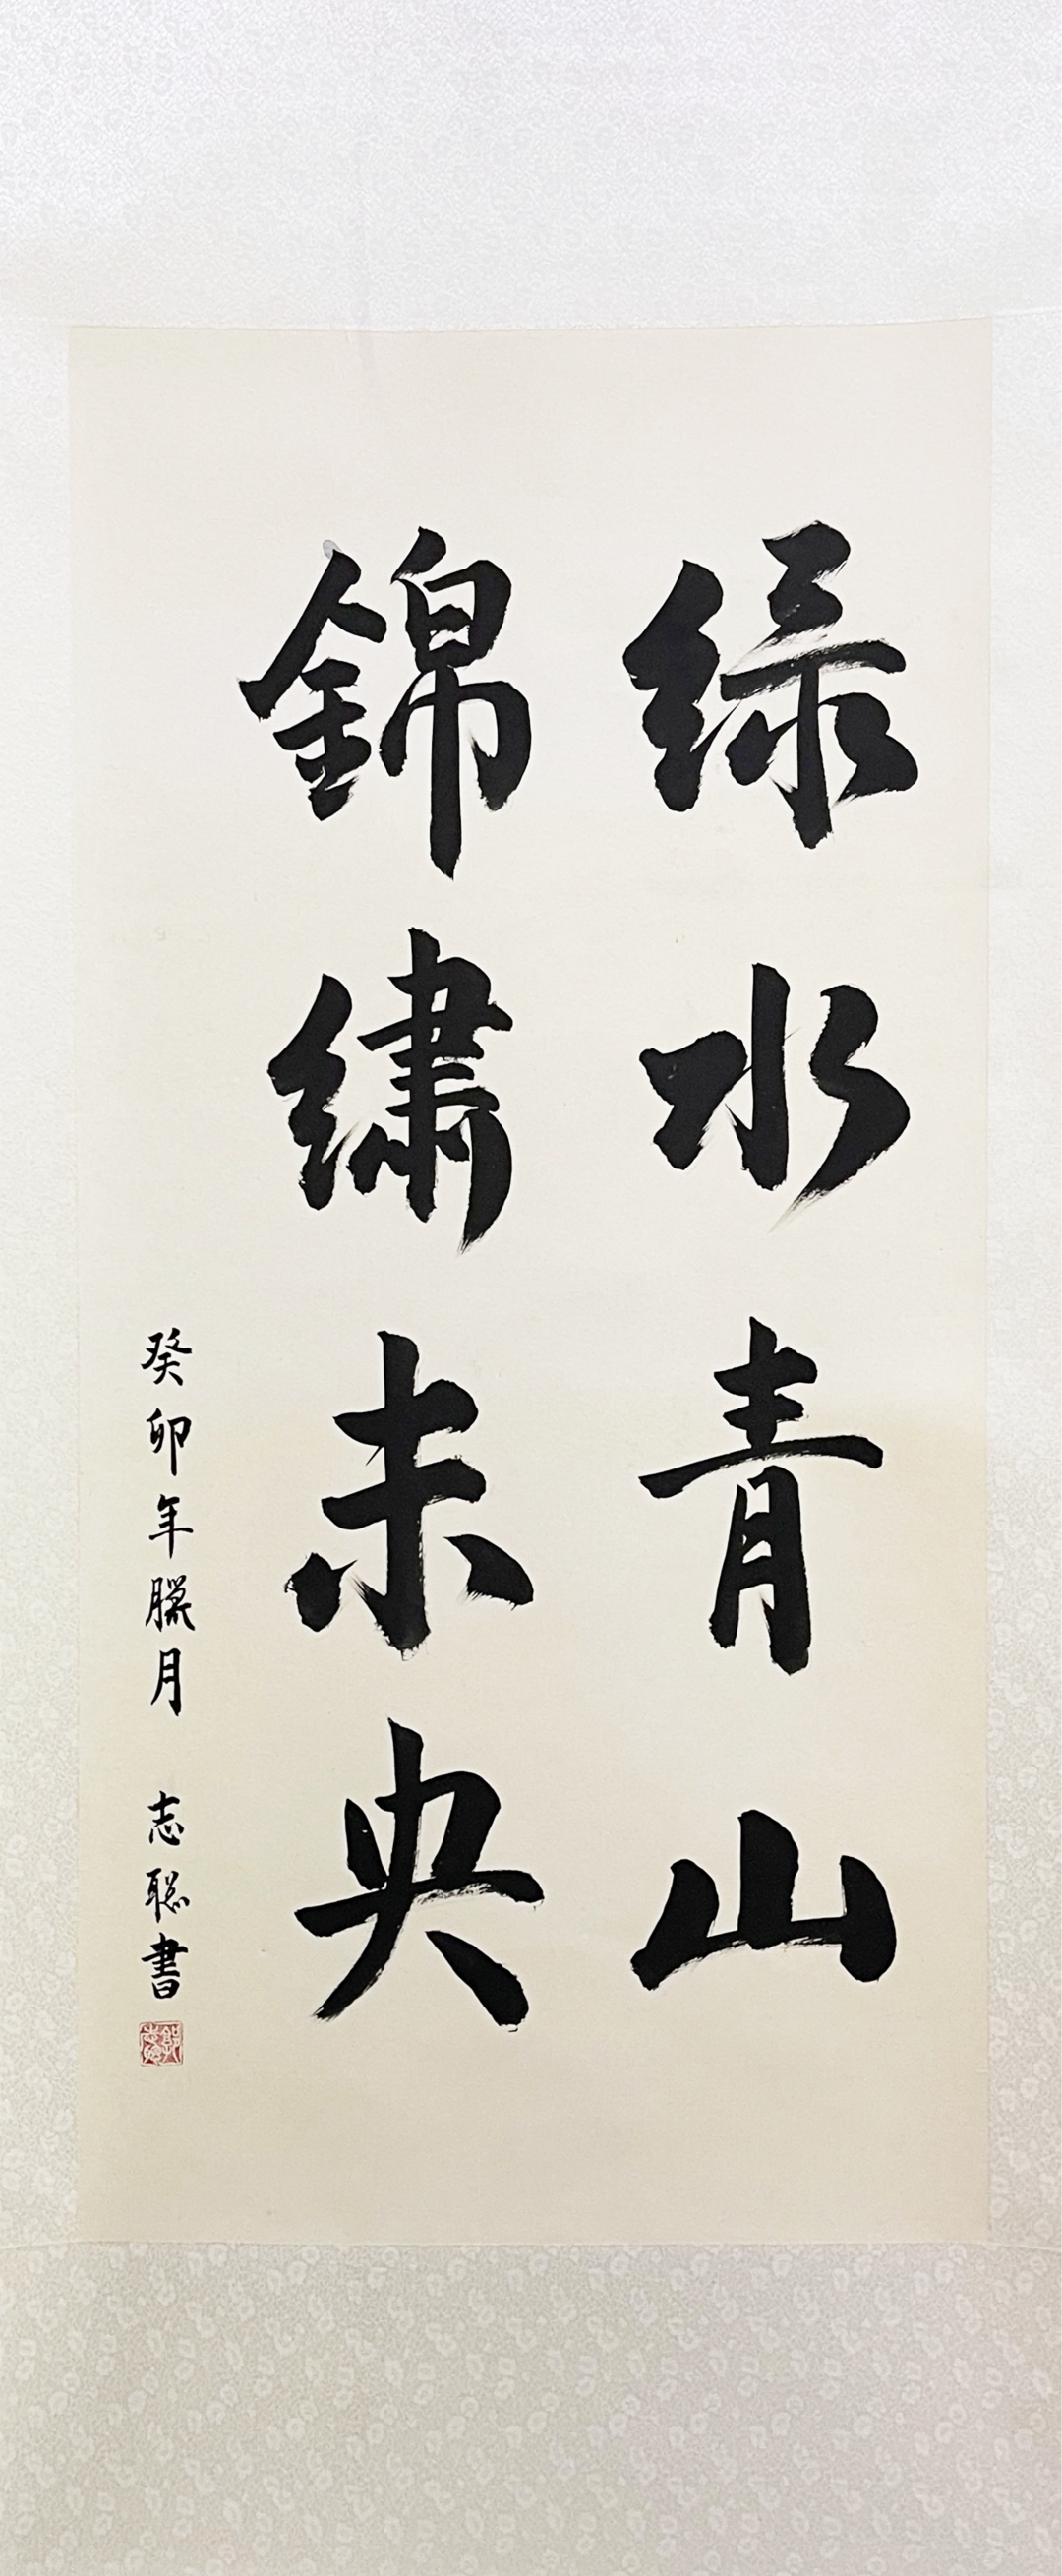 緑水青山
錦繡未央
癸卯年臘月 志聡書